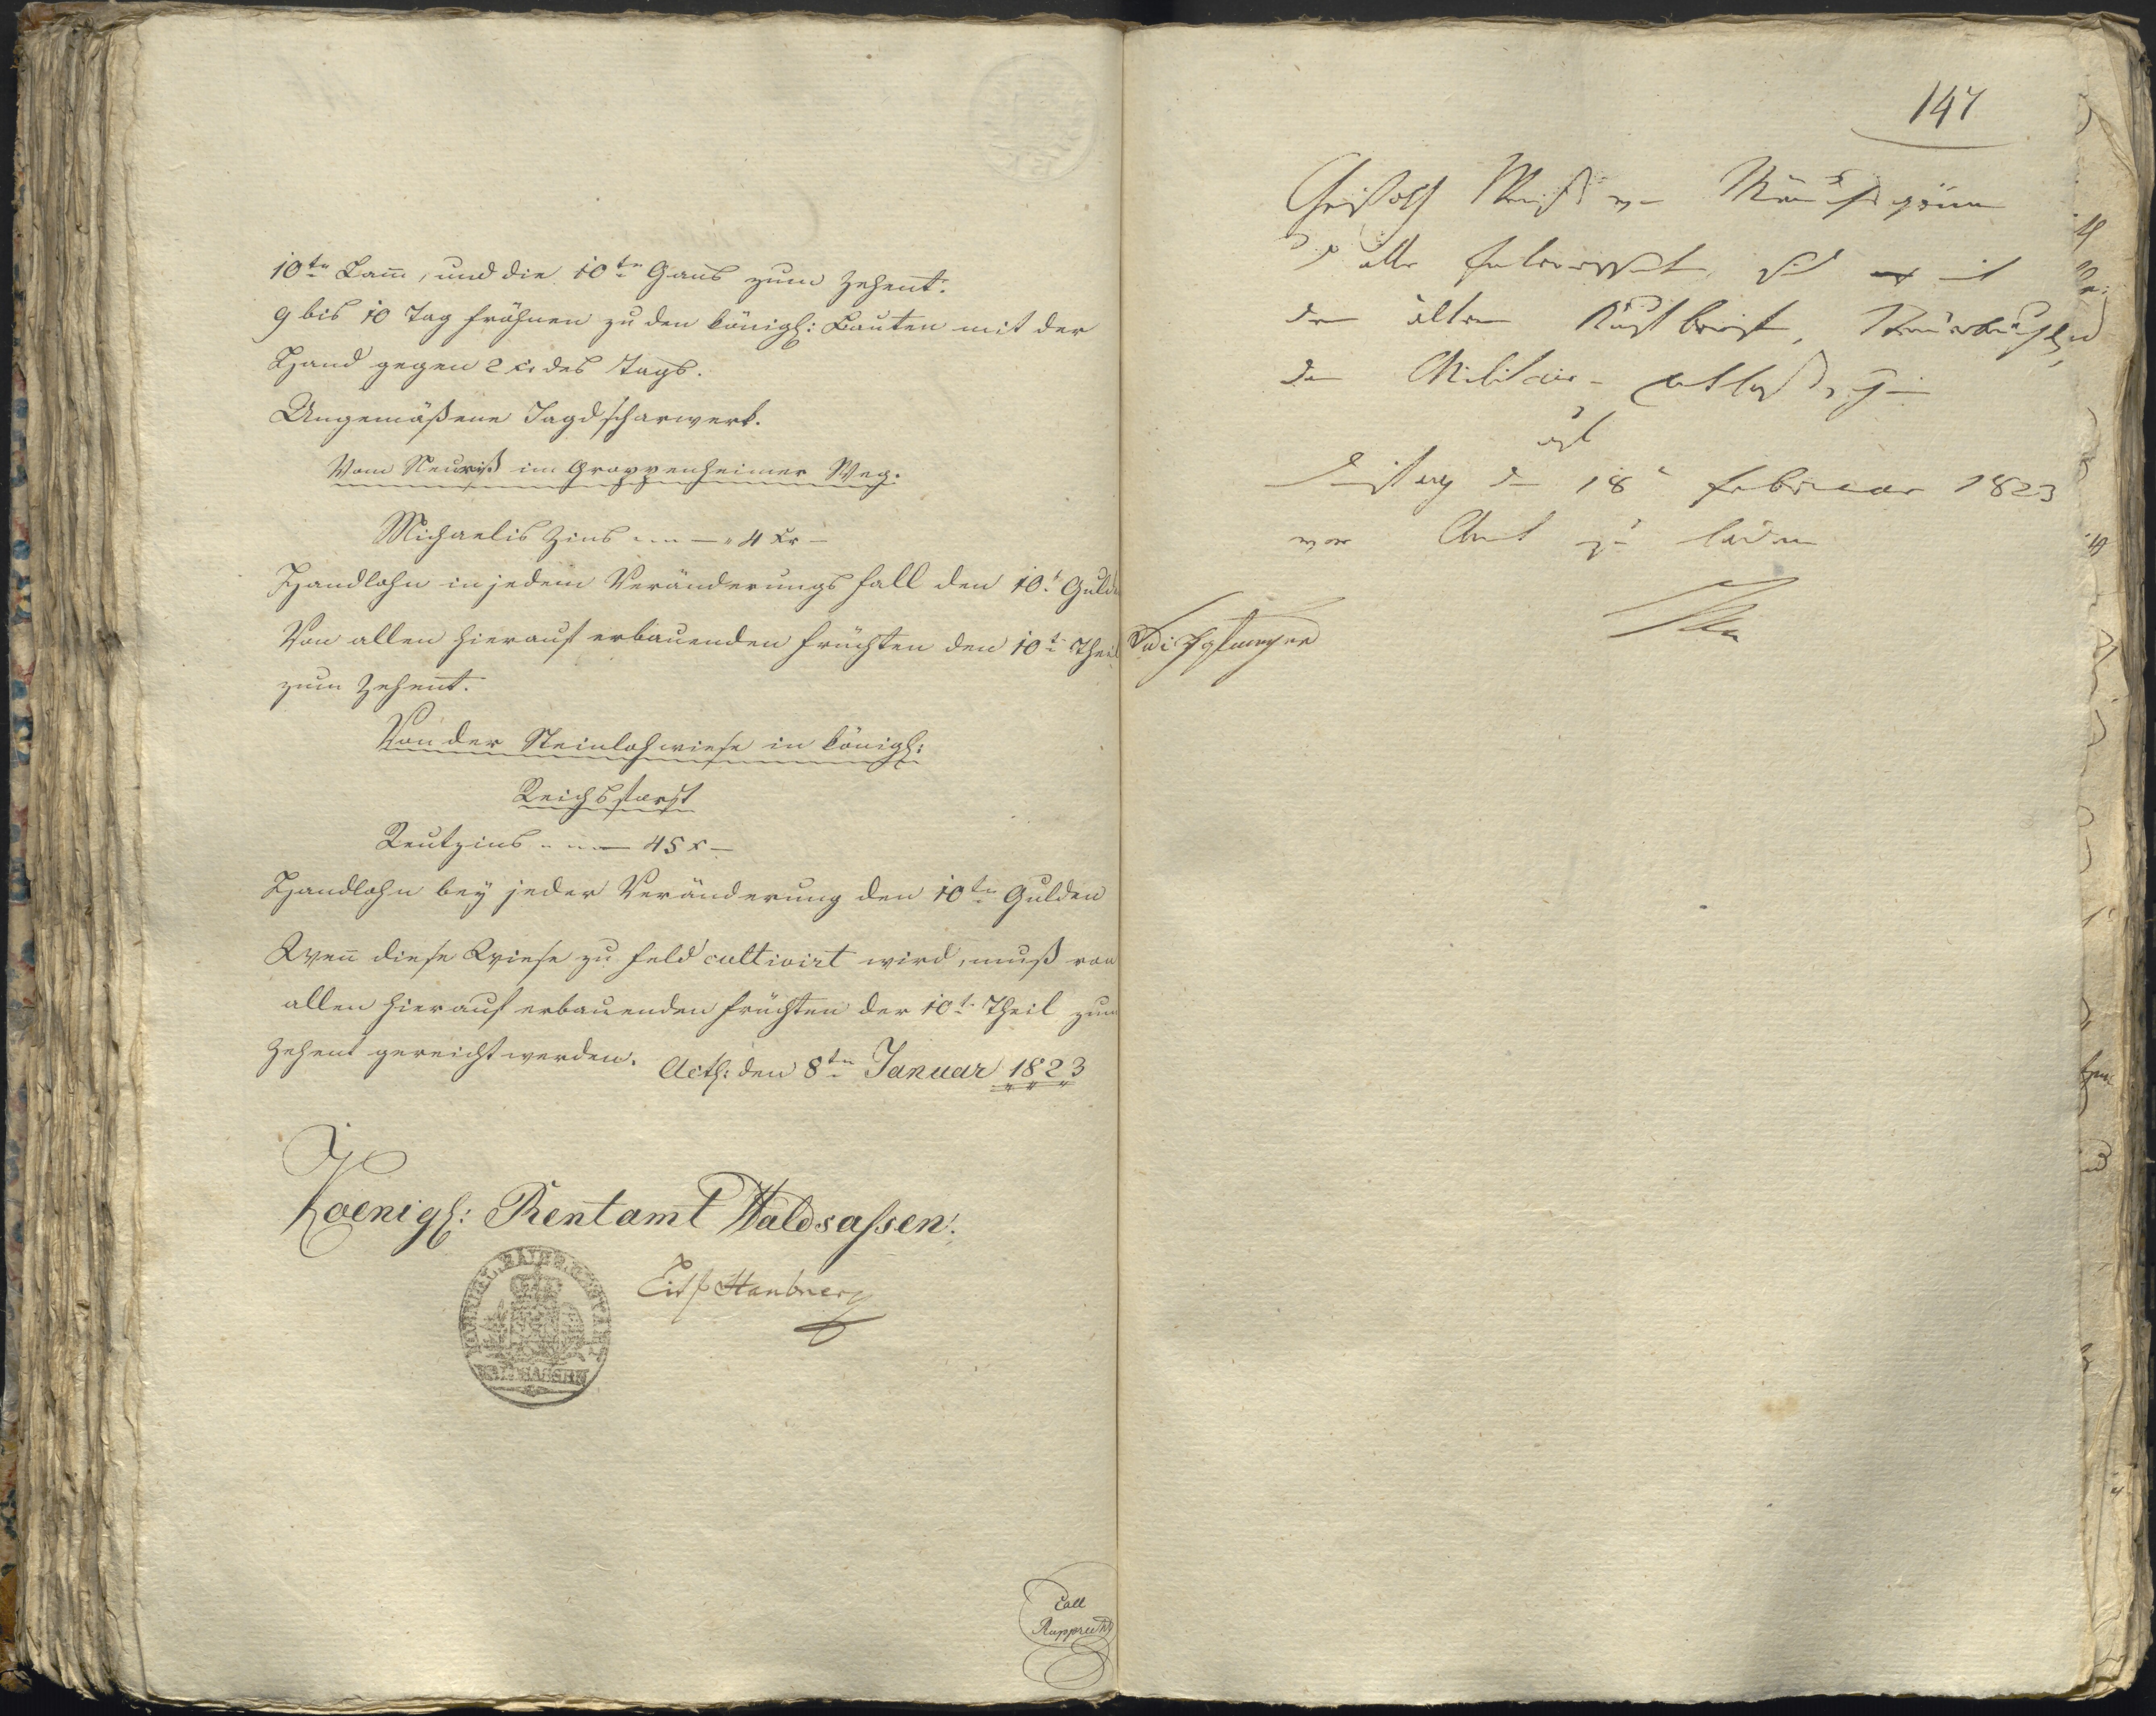 10ten Lam̄, und die 10ten Gans zum Zehent.
9 bis 10 Tag frohnen zu den königl: Bauten mit der
Hand gegen 2 xr des Tags.
Ungemäßene Jagdscharwerk.
Vom Neuriß im Groppenheimer Weg.
Michaelis Zins 4 xr
Handlohn in jedem Veränderungs fall den 10t Guld
Von allen hierauf erbauenden Früchten den 10t Theil
zum Zehent.
Von der Steinlohwiese in königl:
Reichsforst
Reutzins 45 x
Handlohn bey jeder Veränderung den 10ten Gulden
Wen̄ diese Wiese zu Feld cultivirt wird, muß von
allen hierauf erbauenden Früchten der 10t Theil zum
Zehent gereicht werden.
Acth: den 8ten Januar 1823
Koenigl: Rentamt Waldsassen.
WALDSASSEN
Coll
Rupprecht
147
Christoph
alle
den alten Kaufbrief,
den Militair-
ist
Dienstag den 18t Februar 1823
vor Amt zu laden